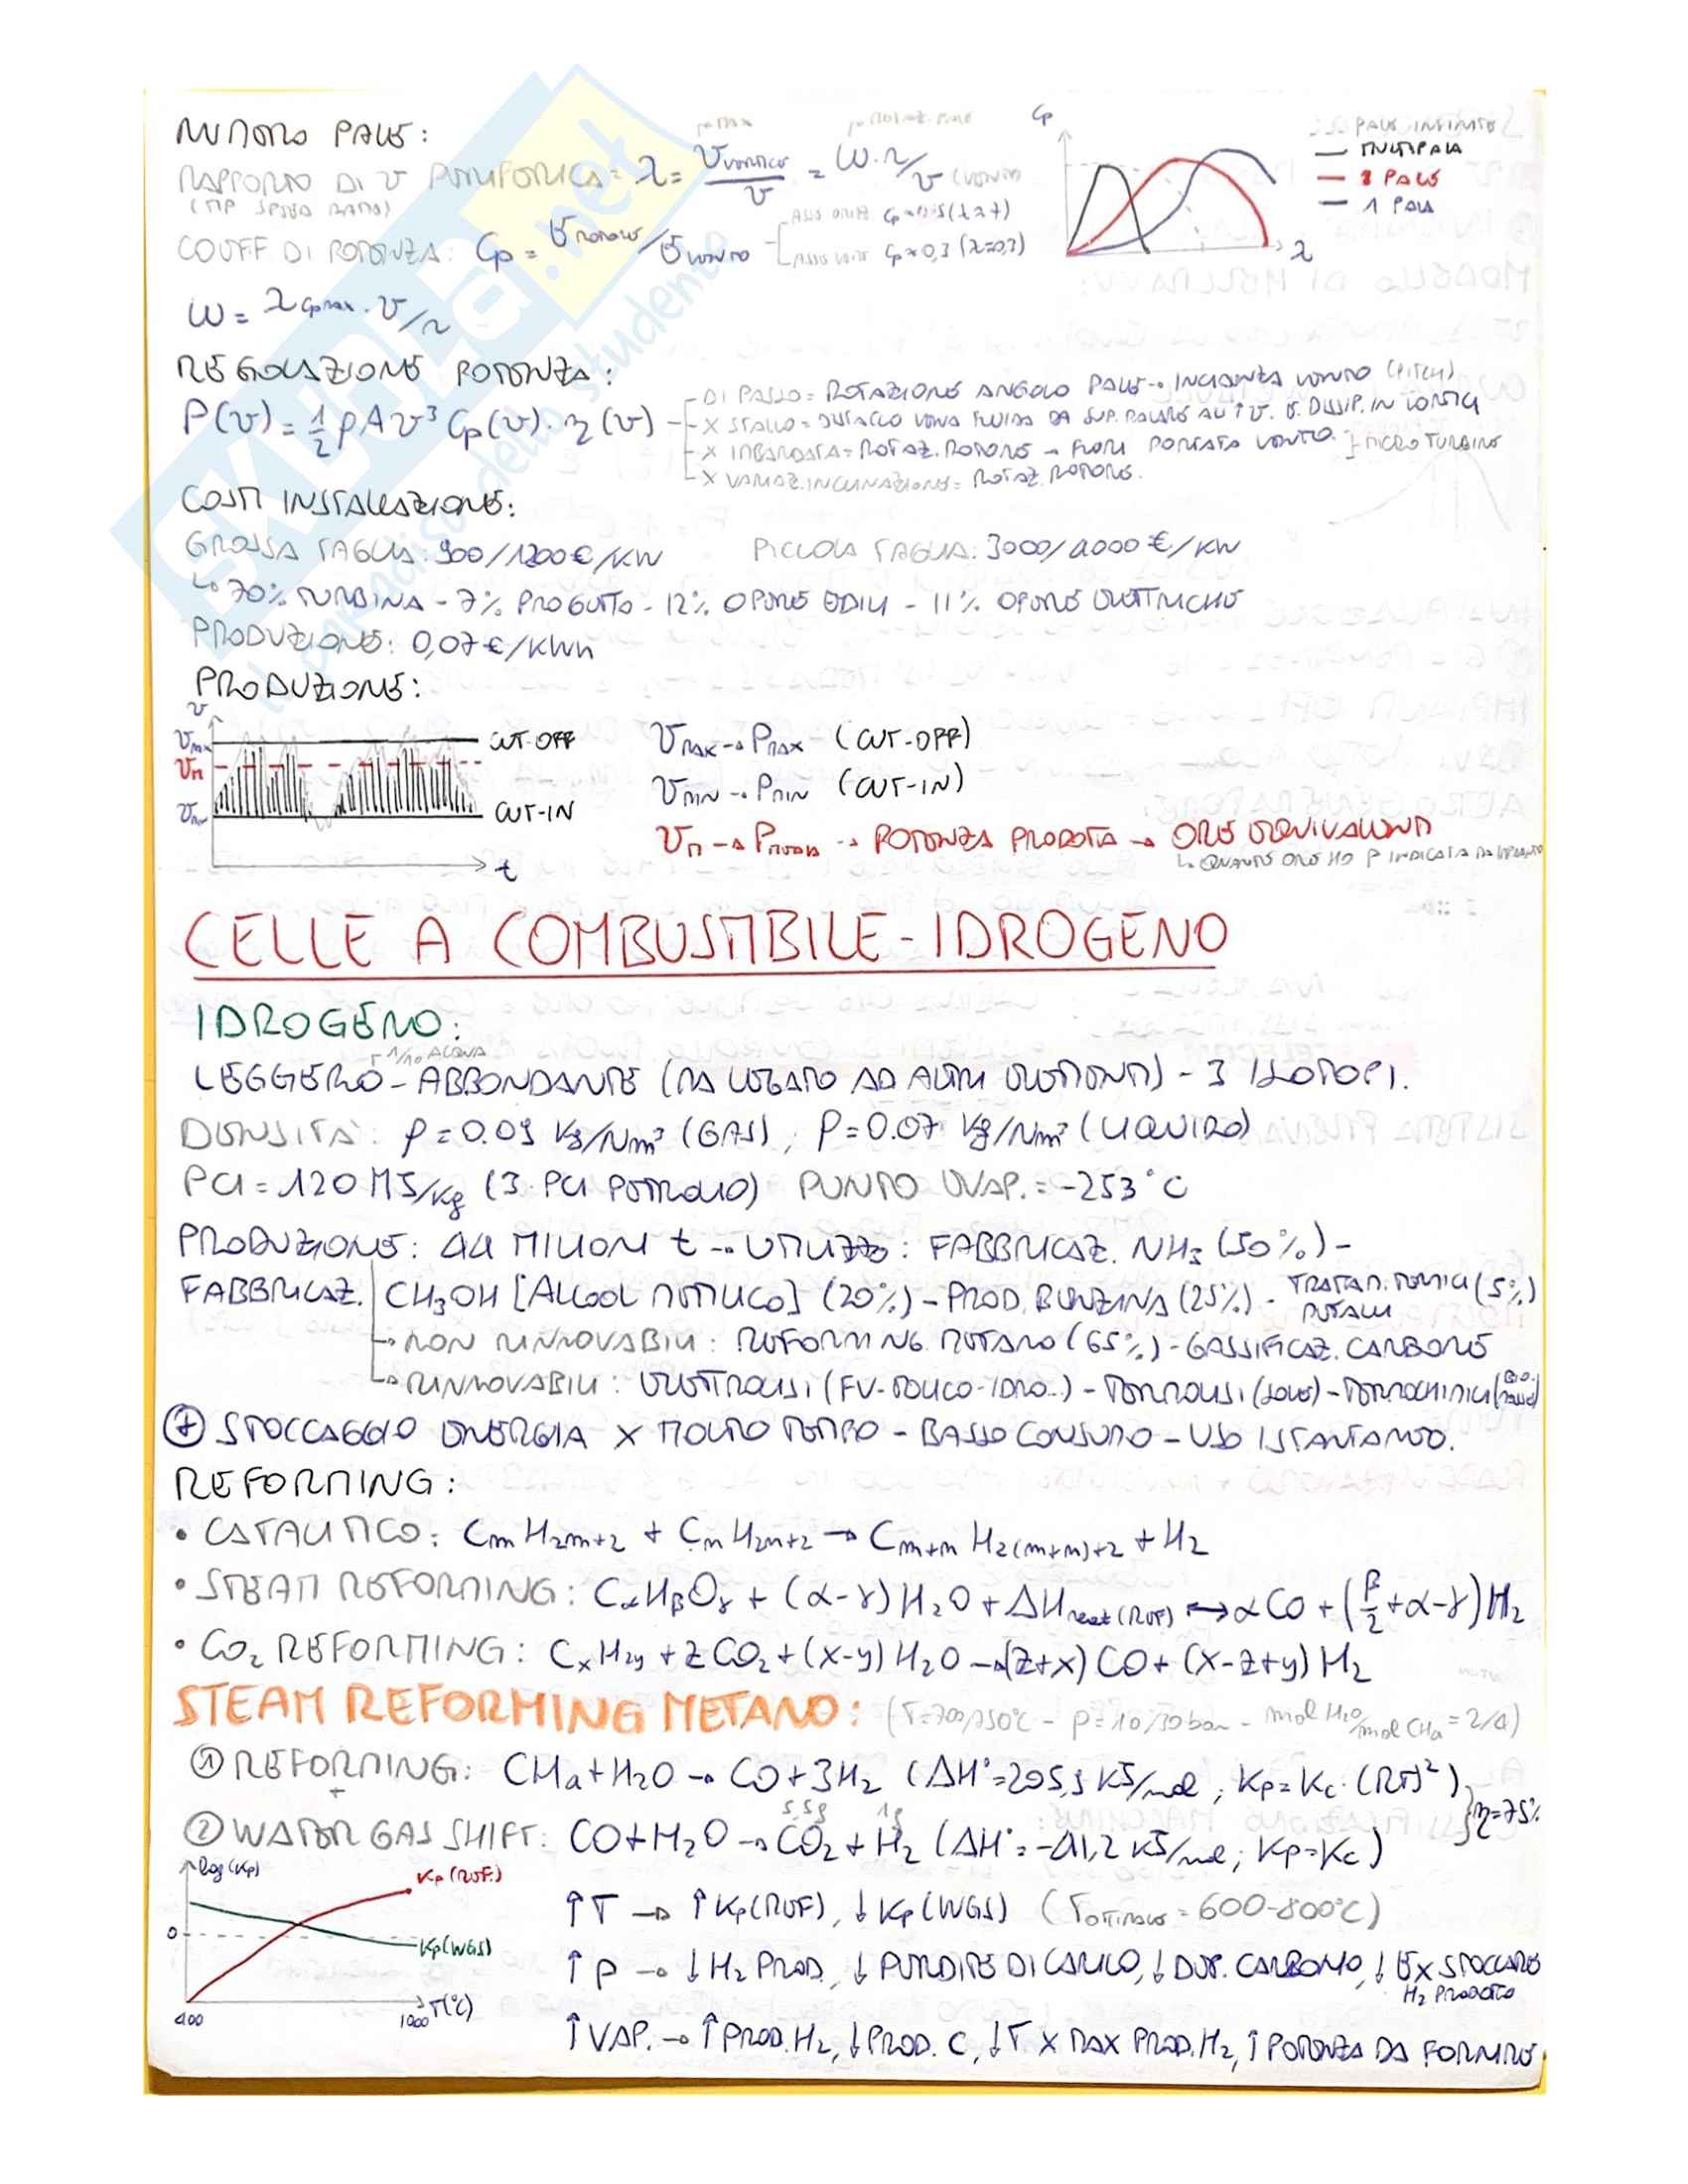 NUMERO PALE:
RAPPORTO DI v PERIFERICA = λ = v vertice / v = ω·r/v (VENTO)
(TIP SPEED RATIO)
COEFF DI POTENZA: Cp = E rotore / E vento
ASSE ORIZZ Cp≈0,45 (λ=7)
ASSE VERT Cp≈0,3 (λ=0,3)
Cp
λ
PALE INFINITE
MULTIPALA
PALE
1 PALA
ω = λ Cpmax · v/r
REGOLAZIONE POTENZA:
P(v) = 1/2 ρ A v³ Cp(v) · η(v)
DI PASSO = ROTAZIONE ANGOLO PALE → INCIDENZA VENTO (PITCH)
X STALLO = DISTACCO VENA FLUIDA DA SUP. PALARE AL ↑ v. E. DISSIP. IN VORTICI
X IMBARDATA = ROTAZ. ROTORE → FUORI PORTATA VENTO. } MICRO TURBINE
X VARIAZ. INCLINAZIONE = ROTAZ. ROTORE.
COSTI INSTALLAZIONE:
GROSSA TAGLIA: 900/1200 €/KW PICCOLA TAGLIA: 3000/4000 €/KW
↳ 70% TURBINA - 7% PROGETTO - 12% OPERE EDILI - 11% OPERE ELETTRICHE
PRODUZIONE: 0,07 €/KWh
PRODUZIONE:
v
CUT-OFF
CUT-IN
t
v MAX → P MAX (CUT-OFF)
v MIN → P MIN (CUT-IN)
v M → P MEDIA → POTENZA PRODOTTA → ORE EQUIVALENTI
↳ QUANTE ORE HO P INDICATA DA IMPIANTO
CELLE A COMBUSTIBILE - IDROGENO
IDROGENO:
1/10 ACQUA
LEGGERO - ABBONDANTE (MA LEGATO AD ALTRI ELEMENTI) - 3 ISOTOPI.
DENSITÀ: ρ = 0.09 Kg/Nm³ (GAS), ρ = 0.07 Kg/Nm³ (LIQUIDO)
PCI = 120 MJ/kg (3·PCI PETROLIO) PUNTO EVAP. = -253°C
PRODUZIONE: 44 MILIONI t → UTILIZZO: FABBRICAZ. NH₃ (50%) -
FABBRICAZ. CH₃OH [ALCOOL METILICO] (20%) - PROD. BENZINA (25%) - TRATTAM. TERMICI METALLI (5%)
→ NON RINNOVABILI: REFORMING METANO (65%) - GASSIFICAZ. CARBONE
→ RINNOVABILI: ELETTROLISI (FV-EOLICO-IDRO..) - TERMOLISI (SOLE) - TERMOCHIMICI
⊕ STOCCAGGIO ENERGIA X MOLTO TEMPO - BASSO CONSUMO - USO ISTANTANEO.
REFORMING:
• CATALITICO: CmH2m+2 + CnH2n+2 → Cm+nH2(m+n)+2 + H₂
• STEAM REFORMING: CαHβOγ + (α-γ) H₂O + ΔHreat(REF) ↔ αCO + (β/2+α-γ) H₂
• CO₂ REFORMING: CxH2y + zCO₂ + (x-y) H₂O → (z+x) CO + (x-z+y) H₂
STEAM REFORMING METANO: (T=700/850°C - p=10/30 bar - mol H₂O/mol CH₄ = 2/4)
① REFORMING: CH₄ + H₂O → CO + 3H₂ (ΔH°=205,9 KJ/mol ; Kp = Kc·(RT)²)
+
5,5g 1g
② WATER GAS SHIFT: CO + H₂O → CO₂ + H₂ (ΔH°=-41,2 KJ/mol ; Kp=Kc)
} η=75%
log(Kp)
Kp (REF.)
0
Kp(WGS)
400
1000 T(°C)
↑T → ↑Kp(REF), ↓Kp(WGS) (T OTTIMALE = 600-800°C)
↑p → ↓H₂ PROD, ↓PERDITE DI CARICO, ↓DEP. CARBONIO, ↓E X STOCCARE H₂ PRODOTTO
↑VAP. → ↑PROD. H₂, ↓PROD. C, ↓T X MAX PROD. H₂, ↑POTENZA DA FORNIRE.
SKUOLA.net
il paradiso dello studente